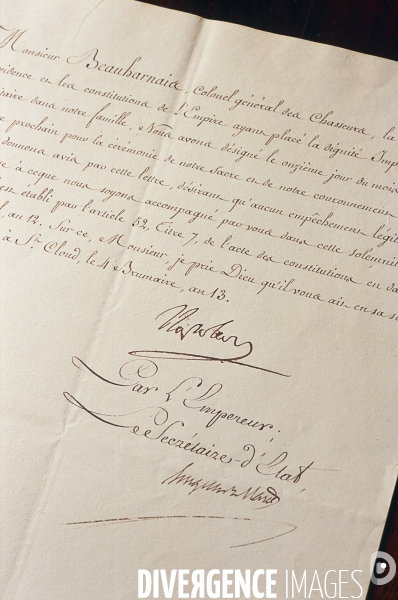 Monsieur Beauharnais, Colonel général des Chasseurs, la
vidence et les constitutions de l'Empire ayant placé la dignité Imp
taire dans notre famille, Nous avons désigné le onzième jour du mois
e prochain pour la cérémonie de notre Sacre et de notre couronnement
donnons avis par cette lettre, désirant qu'aucun empêchement légit
e à ceque nous soyons accompagné par vous dans cette solemnit
est établi par l'article 52, titre 7, de l'acte des constitutions en da
l, an 12. Sur ce, Monsieur, je prie Dieu qu'il vous ait en sa s
à St. Cloud, le 4 Brumaire, an 13.
Napoleon
Par l'Empereur:
Le Secrétaire d'Etat,
DIVERGENCE IMAGES